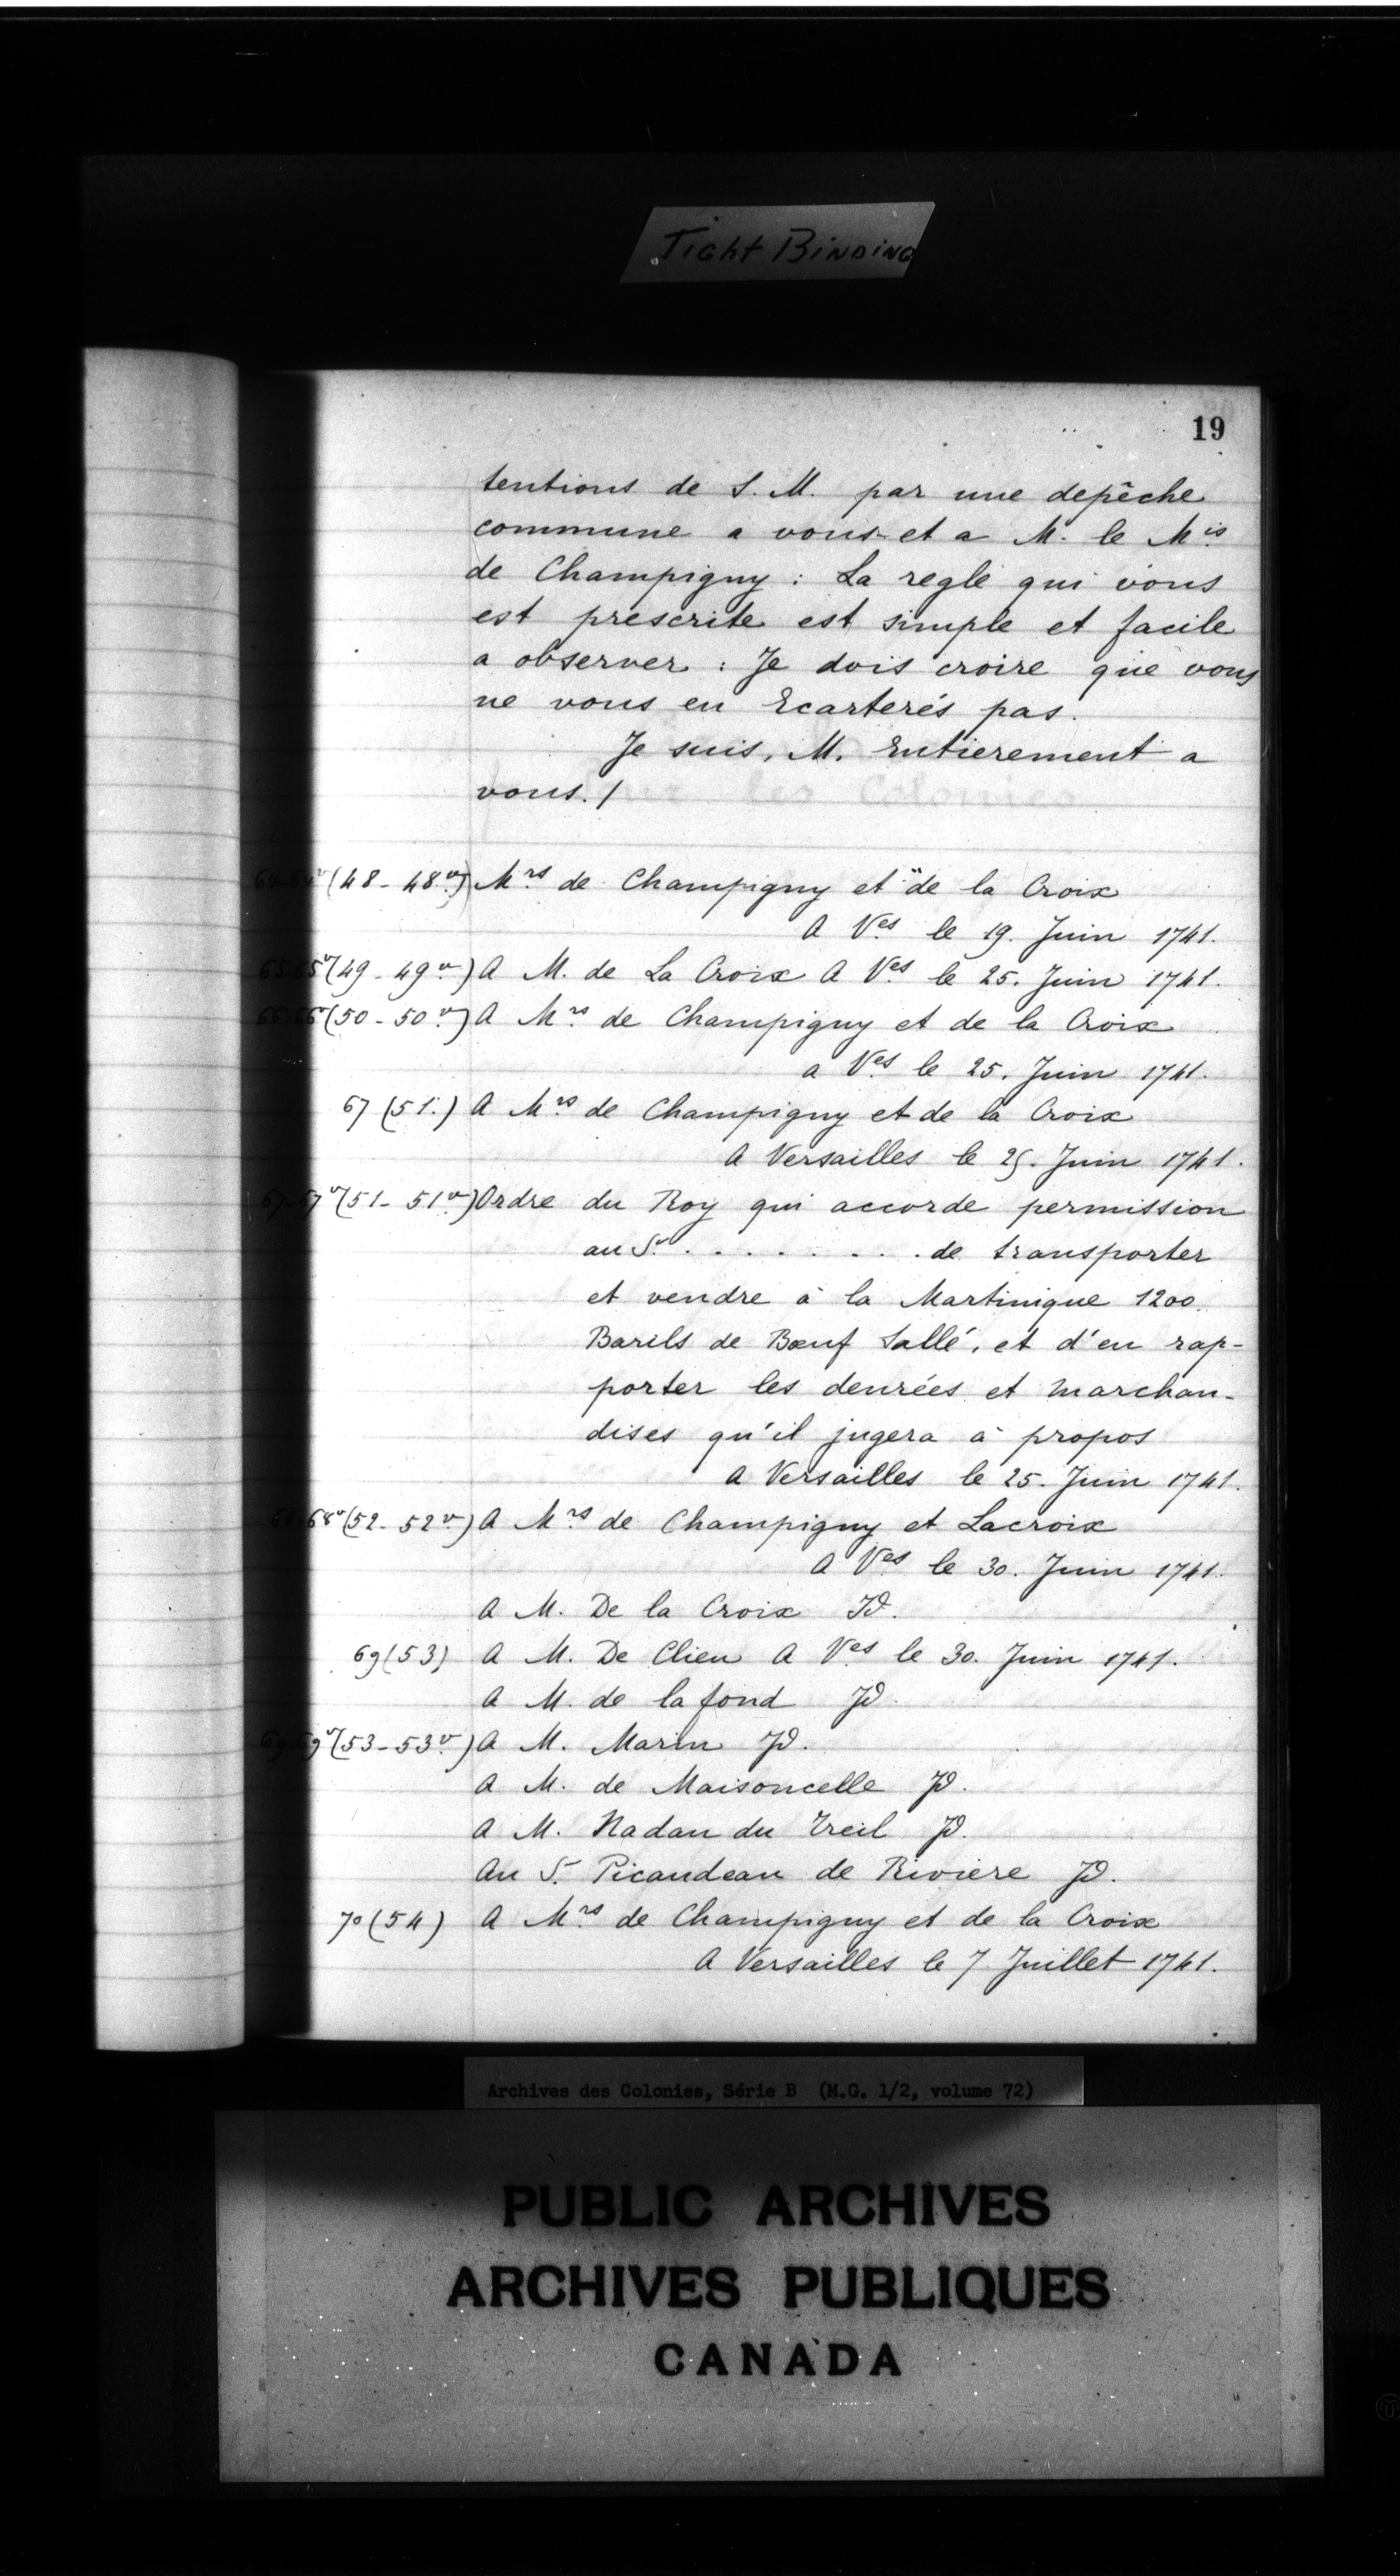 Tight Binding
19
tentions de S. M. par une depêche
commune a vous et a M. le Mis
de Champigny : La regle qui vous
est prescrite est simple et facile
a observer : Je dois croire que vous
ne vous en Ecarterés pas.
Je suis, M. Entierement a
vous./
64-64v (48 - 48v) Mrs de Champigny et de la Croix
A Ves le 19. Juin 1741.
65-65v (49 - 49v) A M. de La Croix A Ves le 25. Juin 1741.
66-66v (50 - 50v) A Mrs de Champigny et de la Croix
a Ves le 25. Juin 1741.
67 (51.) A Mrs de Champigny et de la Croix
A Versailles le 25. Juin 1741.
67-67v (51 - 51v) Ordre du Roy qui accorde permission
au Sr. . . . . . . . . de transporter
et vendre à la Martinique 1200
Barils de Bœuf Sallé, et d'en rap-
porter les denrées et marchan-
dises qu'il jugera à propos
A Versailles le 25. Juin 1741.
68-68v (52 - 52v) A Mrs de Champigny et Lacroix
A Ves le 30. Juin 1741.
A M. De la Croix Id.
69 (53) A M. De Clieu A Ves le 30. Juin 1741.
A M. de la fond Id.
69-69v (53 - 53v) A M. Marin Id.
A M. de Maisoncelle Id.
A M. Nadau du Treil Id.
Au S. Picaudeau de Riviere Id.
70 (54) A Mrs de Champigny et de la Croix
A Versailles le 7 Juillet 1741.
Archives des Colonies, Série B (M.G. 1/2, volume 72)
PUBLIC ARCHIVES
ARCHIVES PUBLIQUES
CANADA